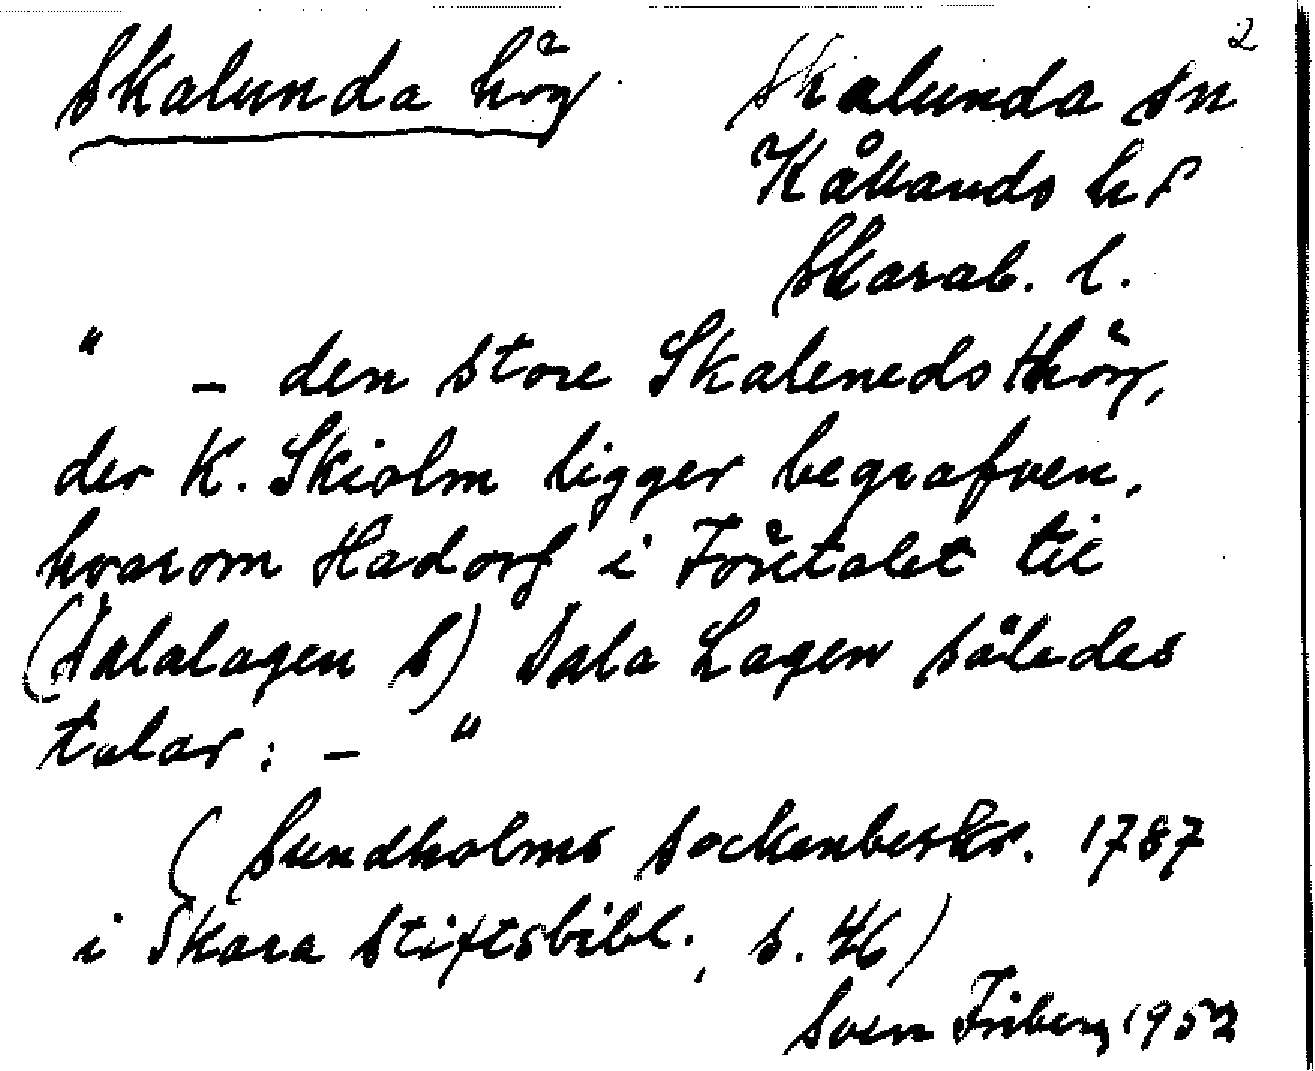 2
Skalunda hög Skalunda sn
Kållands hd
Skarab. l.
" – den store Skaleneds thög,
der K. Skiolm ligger begrafven,
hvarom Hadorf i Företalet til
(Dalalagen s) Dala Lagen således
talar: – "
(Sundholms sockenbeskr. 1787
i Skara stiftsbibl., s. 46)
Sven Friberg 1952